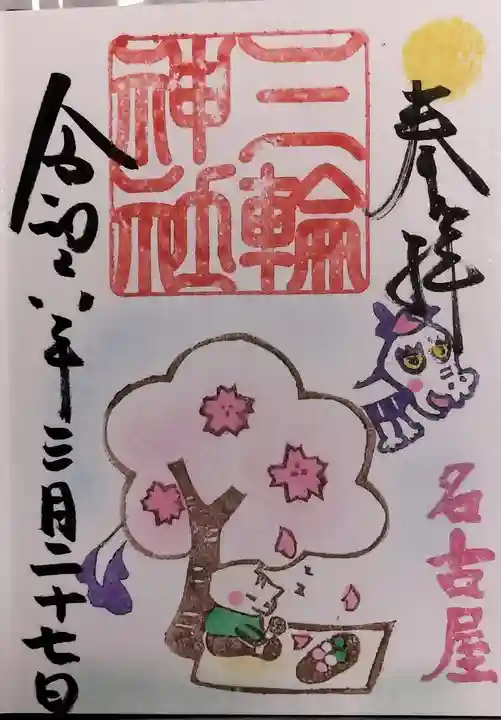 奉拝
三輪
神社
名古屋
令和八年三月二十七日
z z